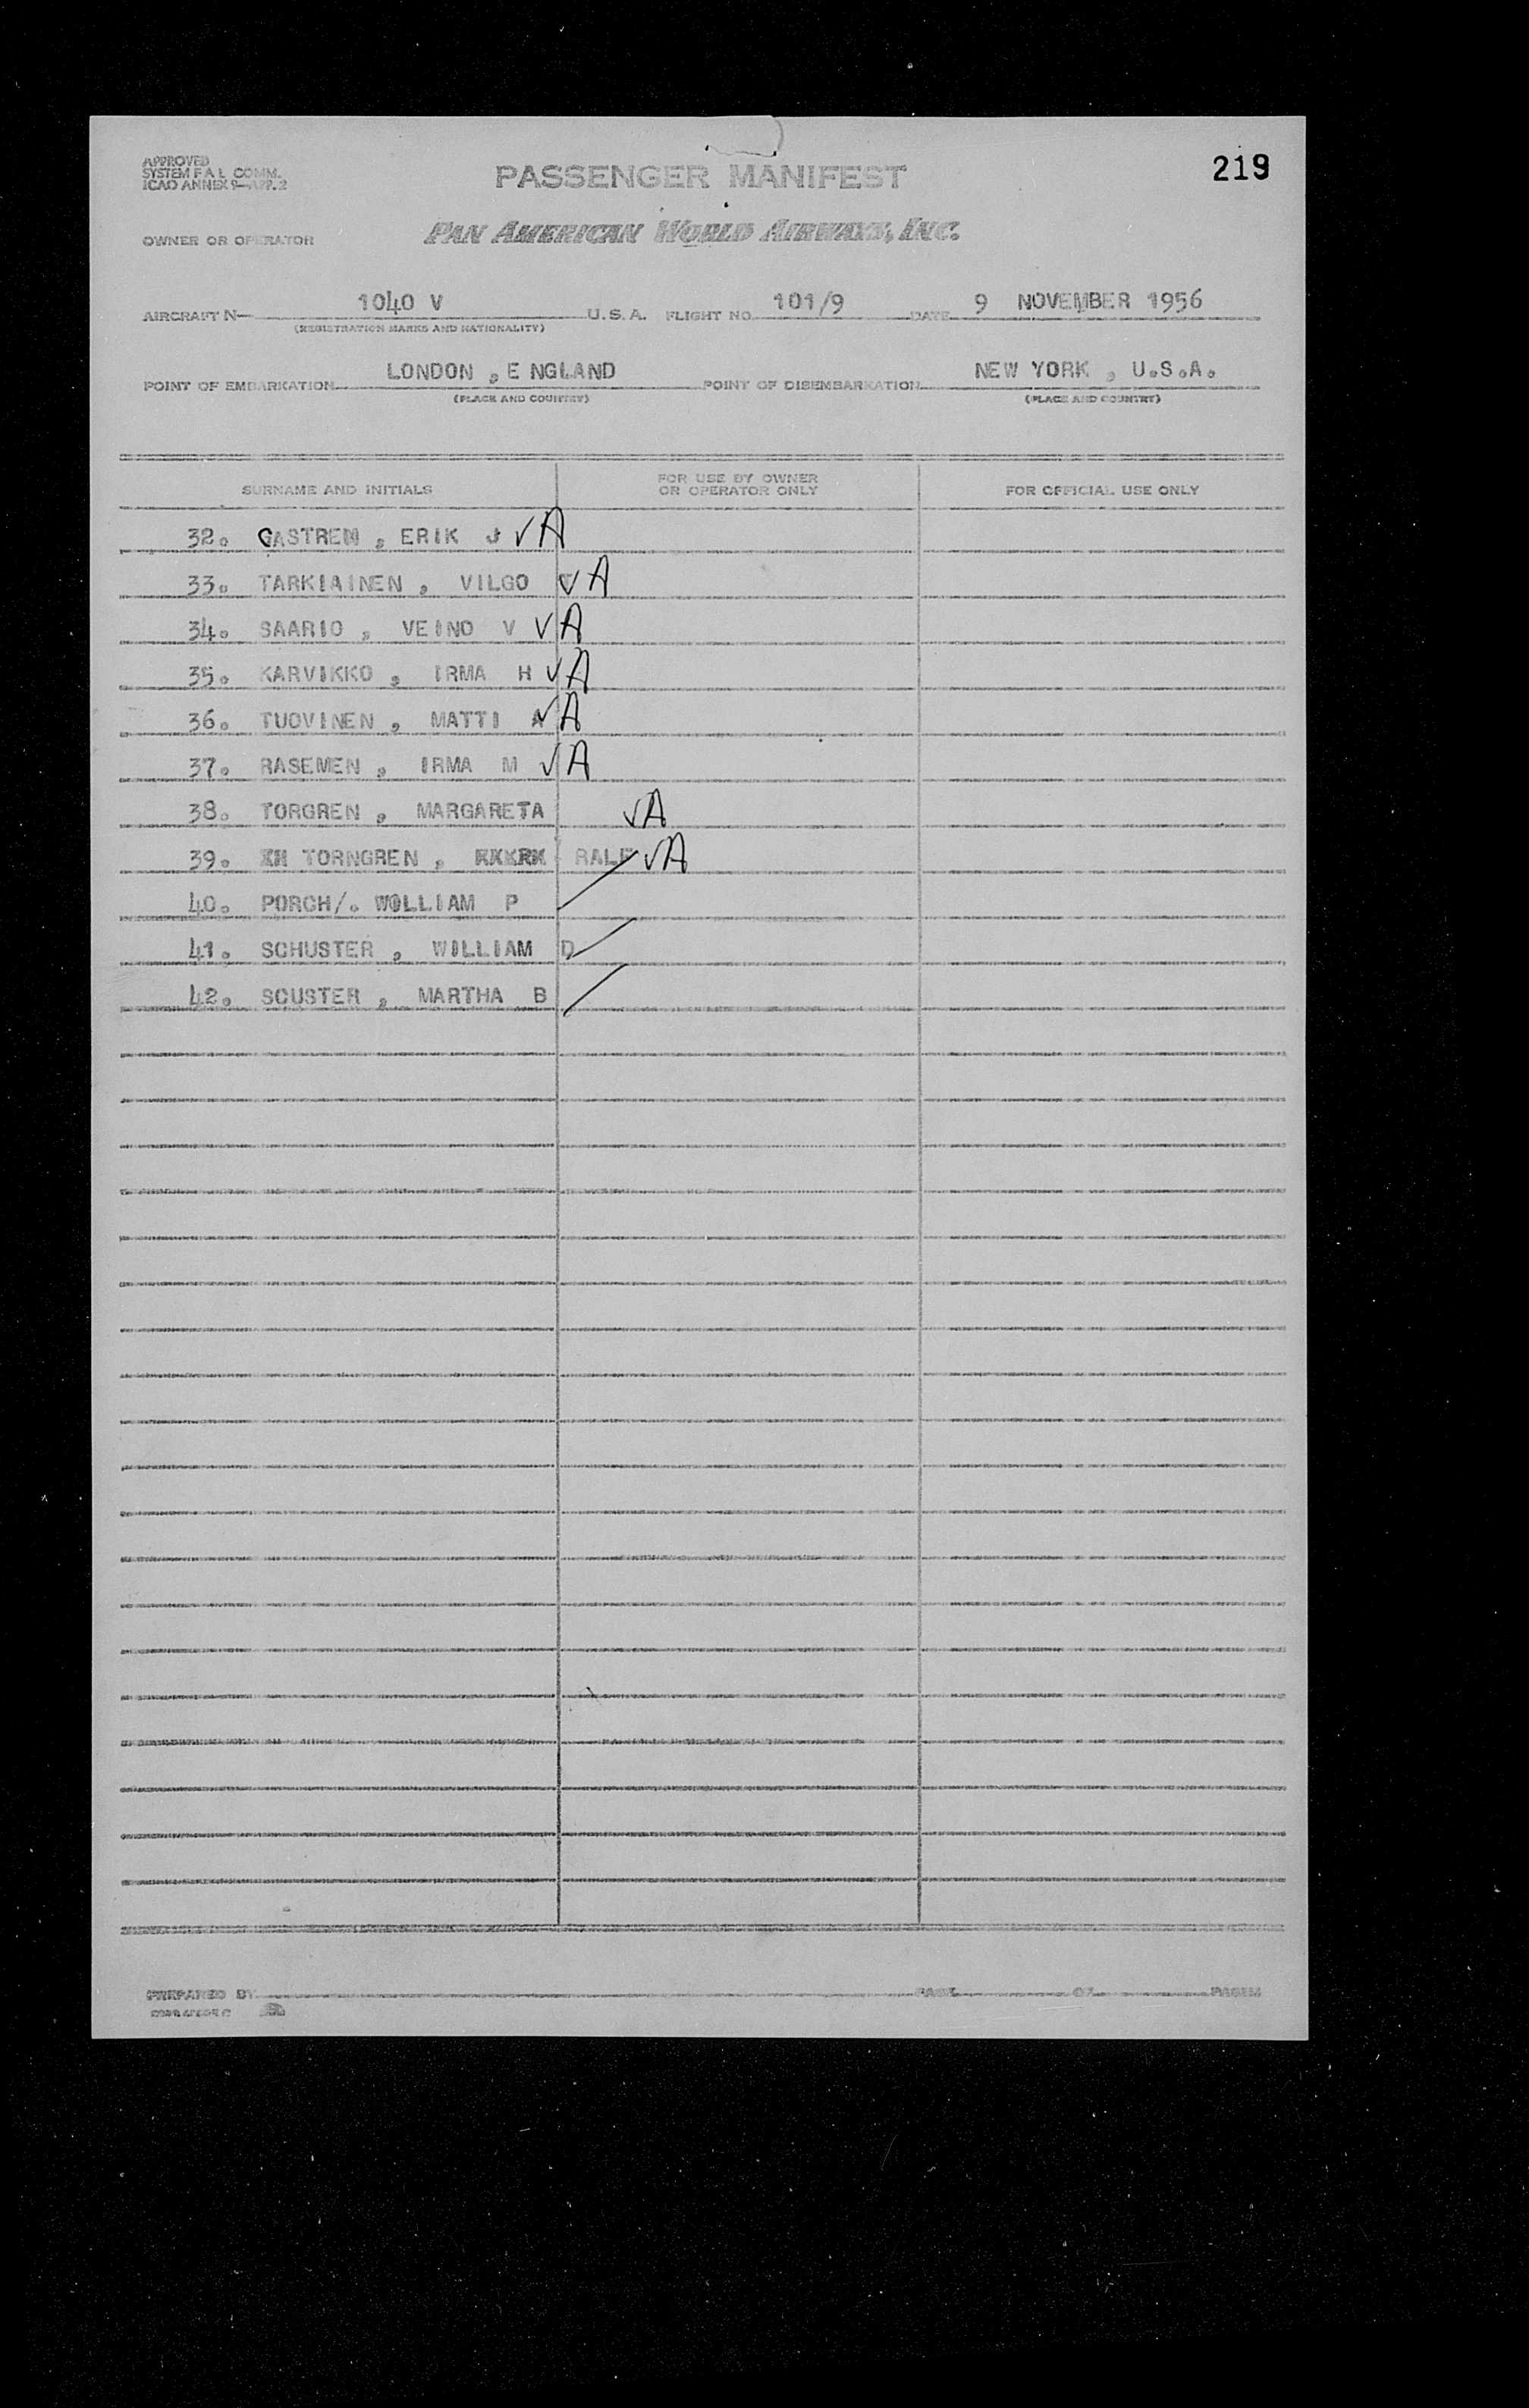 APPROVED
SYSTEM F A L COMM.
ICAO ANNEX 9-APP. 2
PASSENGER MANIFEST
219
OWNER OR OPERATOR
PAN AMERICAN WORLD AIRWAYS, INC.
AIRCRAFT N- 1040 V U.S.A. FLIGHT NO. 101/9 DATE 9 NOVEMBER 1956
(REGISTRATION MARKS AND NATIONALITY)
POINT OF EMBARKATION LONDON , E NGLAND POINT OF DISEMBARKATION NEW YORK , U.S.A.
(PLACE AND COUNTRY) (PLACE AND COUNTRY)
SURNAME AND INITIALS FOR USE BY OWNER OR OPERATOR ONLY FOR OFFICIAL USE ONLY
32. CASTREN , ERIK J √ A
33. TARKIAINEN , VILGO √ A
34. SAARIO , VEINO V √ A
35. KARVIKKO , IRMA H √ A
36. TUOVINEN , MATTI A √ A
37. RASEMEN , IRMA M √ A
38. TORGREN , MARGARETA √ A
39. TORNGREN , RALF √ A
40. PORCH/. WOLLIAM P /
41. SCHUSTER , WILLIAM D /
42. SCUSTER , MARTHA B /
PREPARED BY PAGE OF PAGES